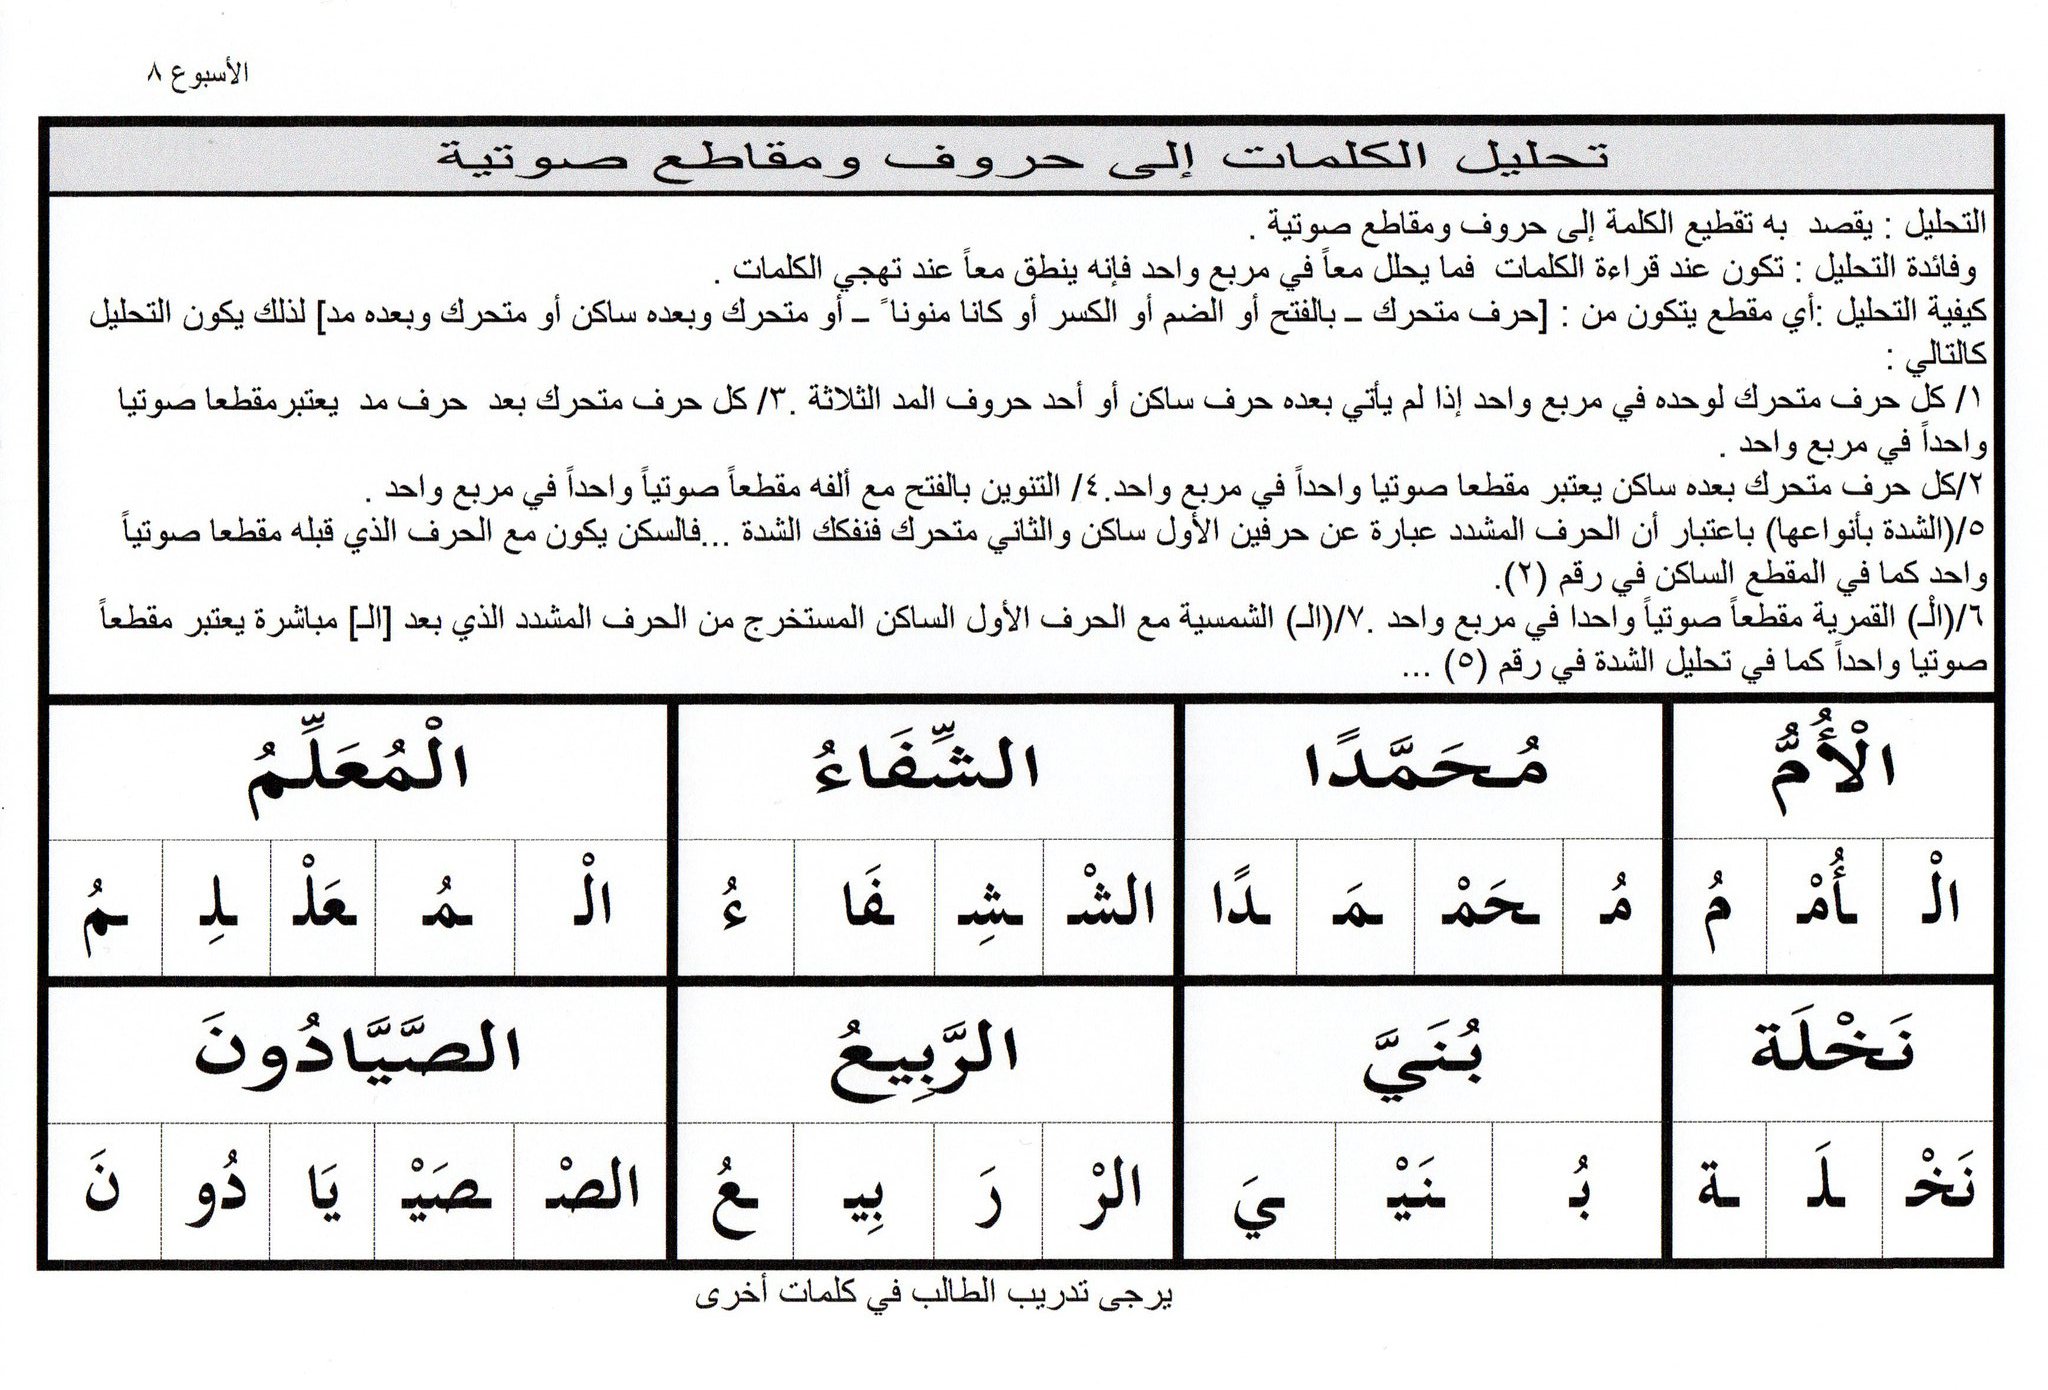 الأسبوع ٨
تحليل الكلمات إلى حروف ومقاطع صوتية
التحليل : يقصد به تقطيع الكلمة إلى حروف ومقاطع صوتية .
وفائدة التحليل : تكون عند قراءة الكلمات فما يحلل معاً في مربع واحد فإنه ينطق معاً عند تهجي الكلمات .
كيفية التحليل :أي مقطع يتكون من : [حرف متحرك ــ بالفتح أو الضم أو الكسر أو كانا منوناً ــ أو متحرك وبعده ساكن أو متحرك وبعده مد] لذلك يكون التحليل
كالتالي :
١/ كل حرف متحرك لوحده في مربع واحد إذا لم يأتي بعده حرف ساكن أو أحد حروف المد الثلاثة .٣/ كل حرف متحرك بعد حرف مد يعتبرمقطعا صوتيا
واحداً في مربع واحد .
٢/كل حرف متحرك بعده ساكن يعتبر مقطعا صوتيا واحداً في مربع واحد.٤/ التنوين بالفتح مع ألفه مقطعاً صوتياً واحداً في مربع واحد .
٥/(الشدة بأنواعها) باعتبار أن الحرف المشدد عبارة عن حرفين الأول ساكن والثاني متحرك فنفكك الشدة ...فالسكن يكون مع الحرف الذي قبله مقطعا صوتياً
واحد كما في المقطع الساكن في رقم (٢).
٦/(الْـ) القمرية مقطعاً صوتياً واحدا في مربع واحد .٧/(الـ) الشمسية مع الحرف الأول الساكن المستخرج من الحرف المشدد الذي بعد [الـ] مباشرة يعتبر مقطعاً
صوتيا واحداً كما في تحليل الشدة في رقم (٥) ...
الْأُمُّ مُحَمَّدًا الشِّفَاءُ الْمُعَلِّمُ
الْـ ـأُمْـ مُ مُـ ـحَمْـ ـمَـ ـدًا الشْـ ـشِـ ـفَا ءُ الْـ ـمُـ ـعَلْـ ـلِـ ـمُ
نَخْلَة بُنَيَّ الرَّبِيعُ الصَّيَّادُونَ
نَخْـ ـلَـ ـة بُـ ـنَيْـ ـيَ الرْ رَ بِيـ ـعُ الصْـ ـصَيْـ يَا دُو نَ
يرجى تدريب الطالب في كلمات أخرى